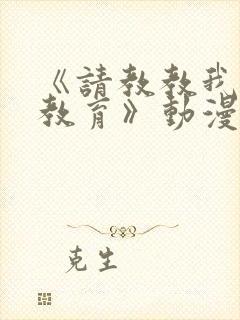 《請教教我
教育》動漫
克生